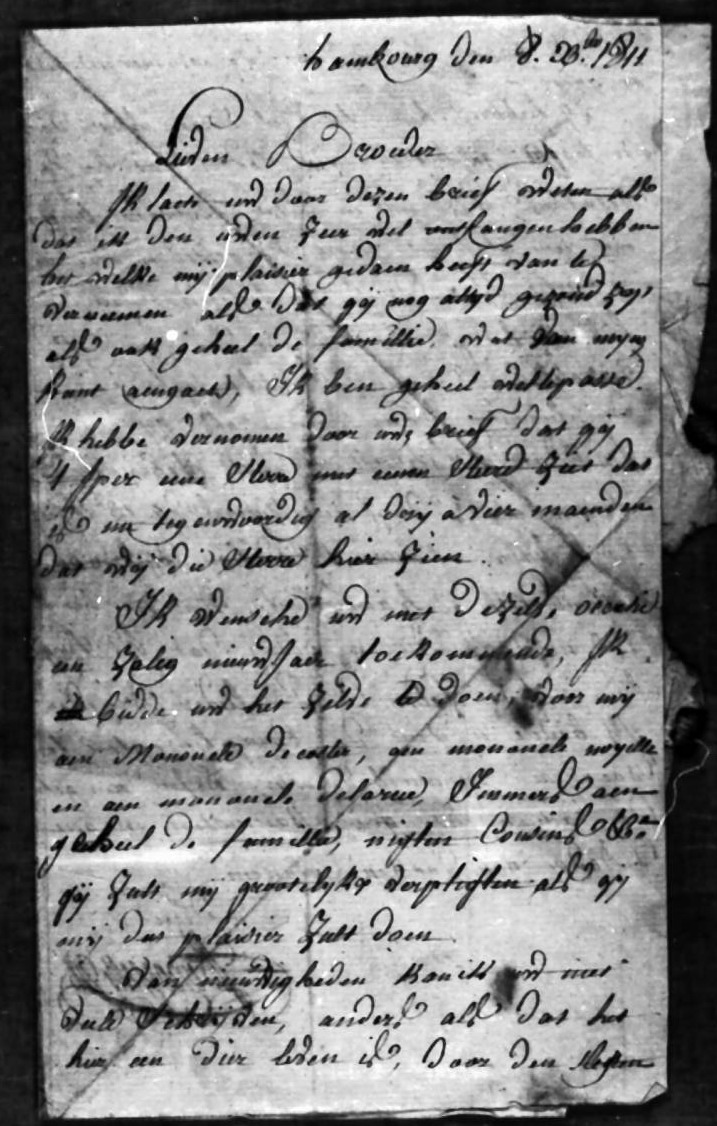 hambourg den 8. Xb.re 1811
Lieden Broeder
Ik laete ud door dezen brief weten als
dat ik den uwen zeer wel ontfangen hebben
het welke mij plaisier gedaen heeft van te
vernemen als dat gij nog altijd gezond zijt
als ook geheel de famillie, wat van mijn
kant aengaet, Ik ben geheel wel te passe.
Ik hebbe vernomen door uwz brief dat gij
t' Iper eene Sterre met eenen steerd ziet dat
is nu tegenwoordig al drij a vier maenden
dat wij die Sterre hier zien.
Ik wensche ud met dezelde occasie
een zalig nieuwjaer toekommende, Ik
bidde ud het zelde te doen, door mij
aen Mononcle decoster, aen mononcle noyelle
en aen mononcle delarue, Immers aen
geheel de famille, nigten Cousins &a
gij zult mij grootelykx verpligten als gij
mij dat plaisier zult doen.
Van nieuwigheden kan ik ud niet
vele schrijven, anders als dat het
hier een dier leven is, door den slegten